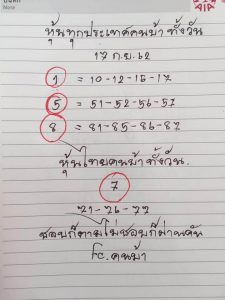 หุ้นทุกประเทศคนบ้า ทั้งวัน
17 ก.ย. 62
1 = 10-12-15-17
5 = 51-52-56-57
8 = 81-85-86-87
หุ้นไทยคนบ้า ทั้งวัน.
7
71-76-77
ชอบก็ตามไม่ชอบก็ผ่านคับ
Fc. คนบ้า